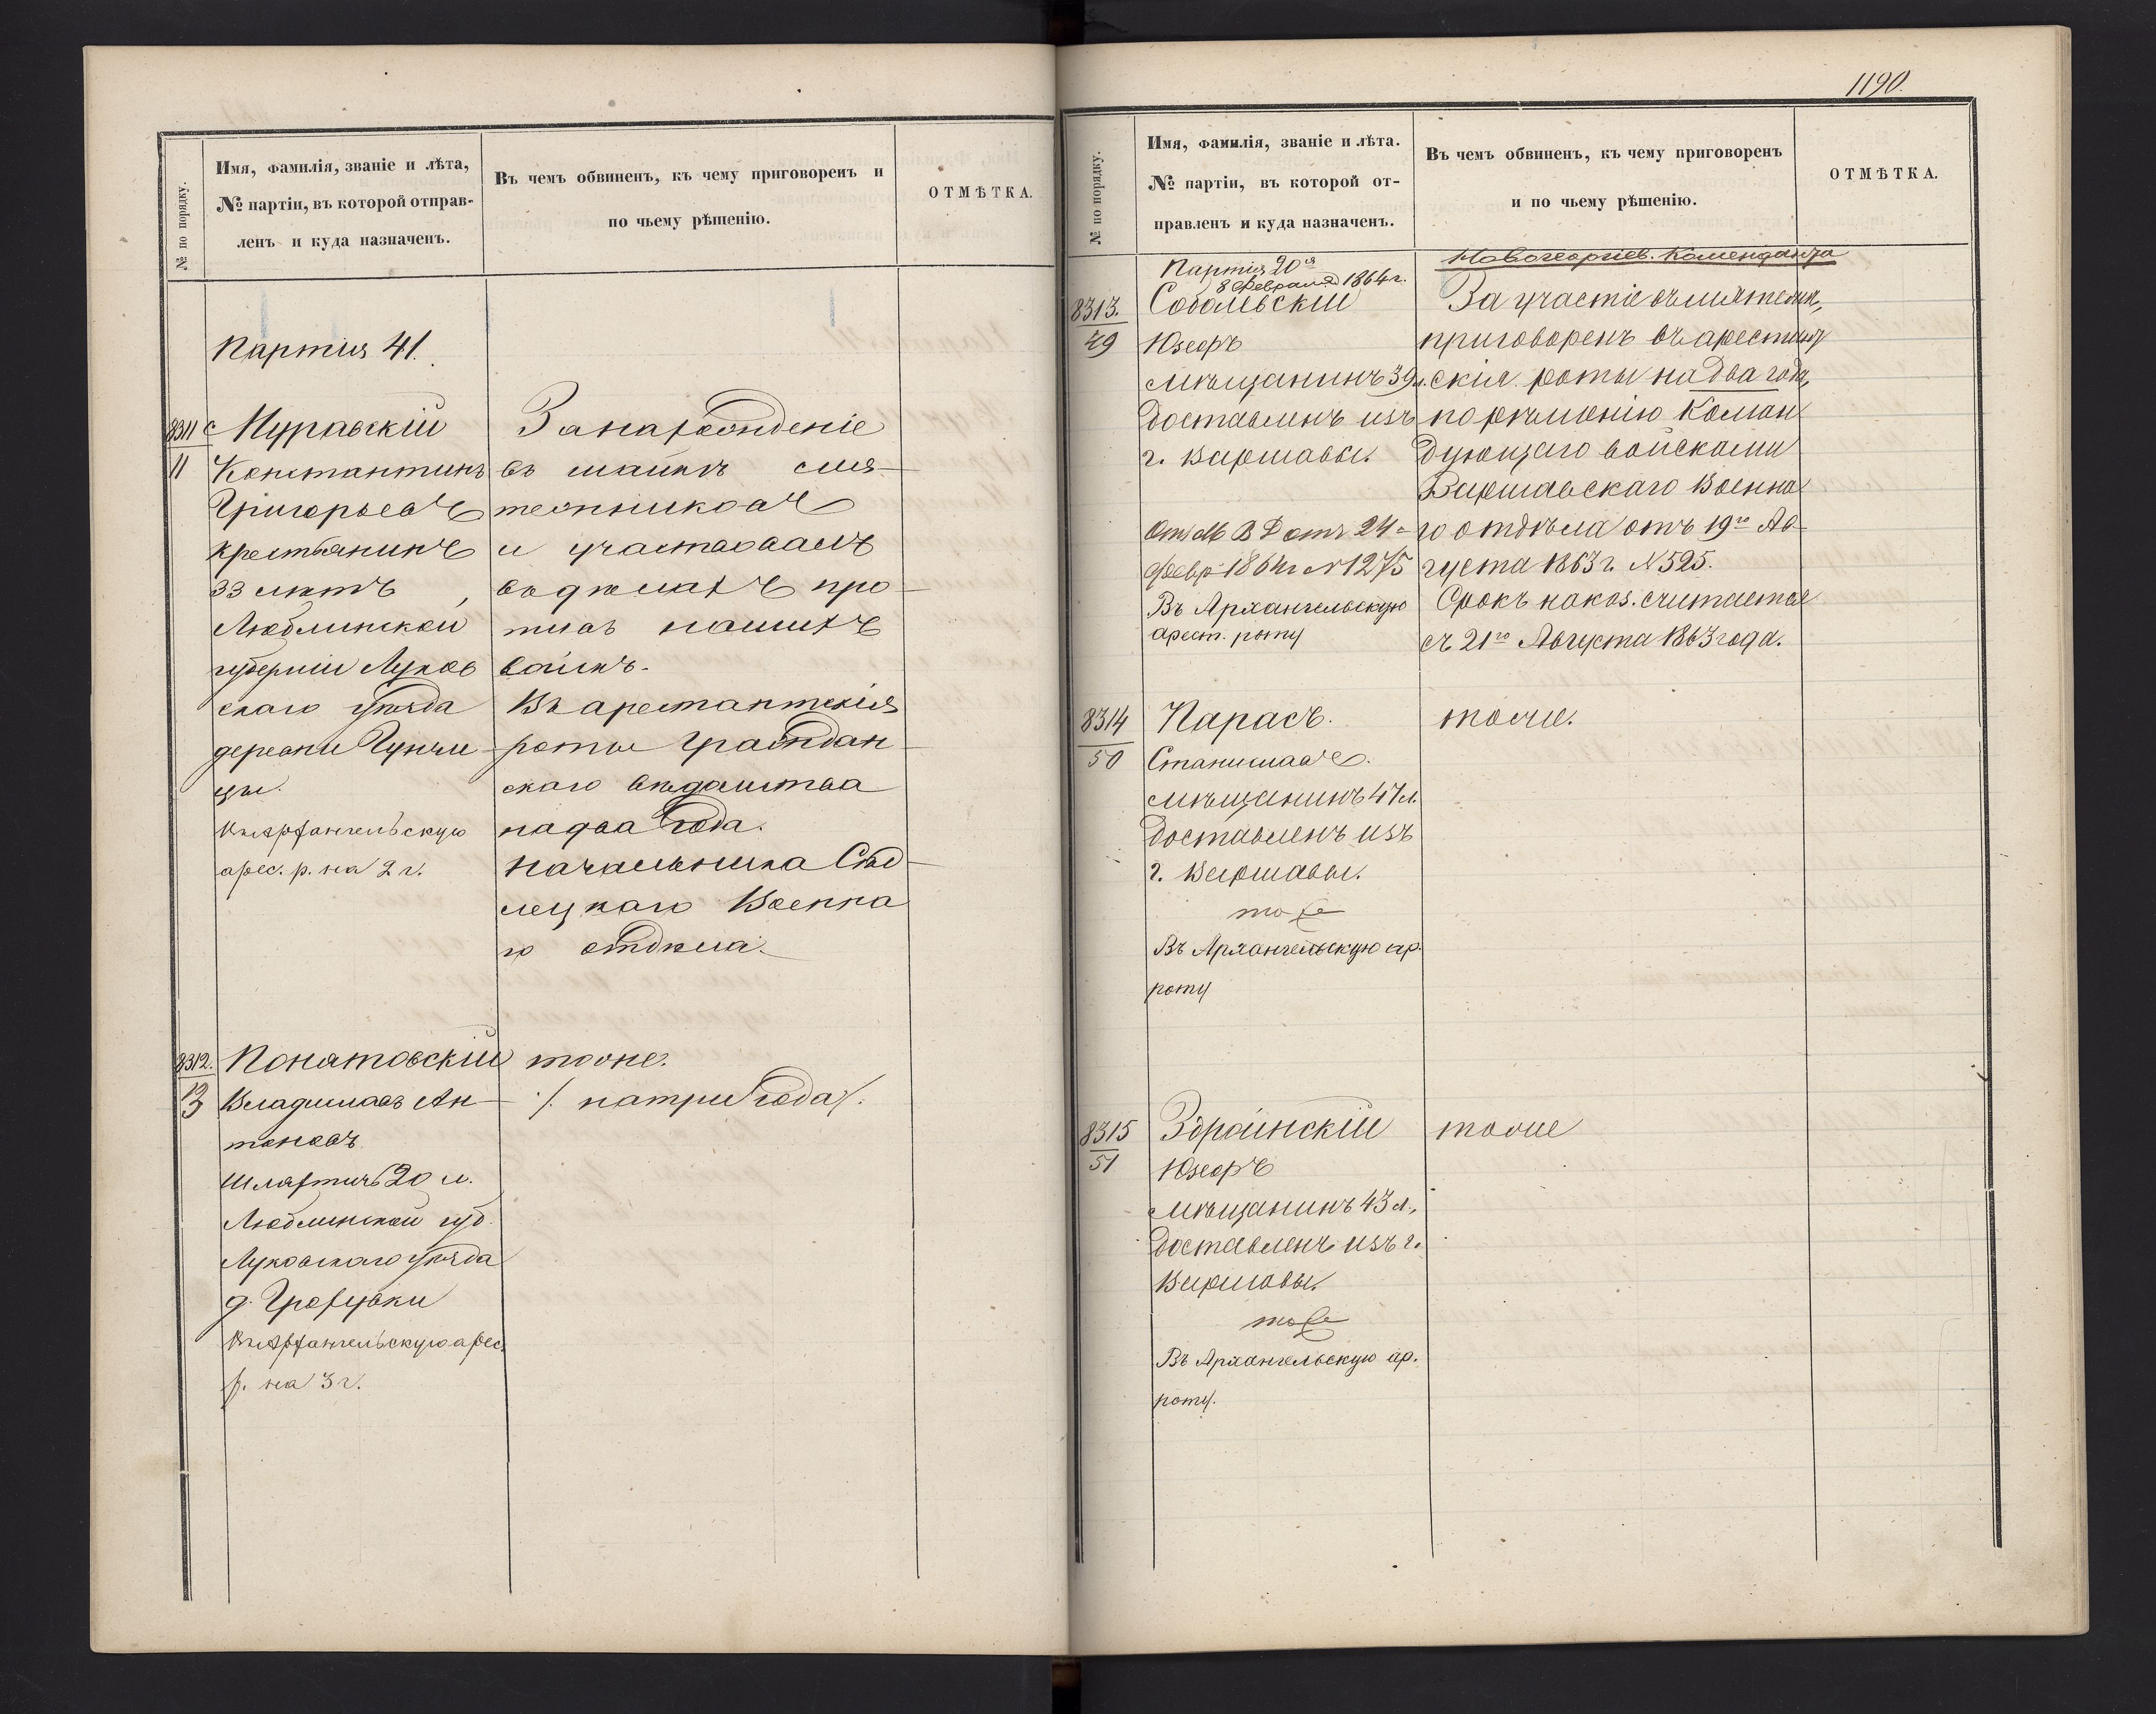 № по порядку.
Имя, фамилія, званіе и лѣта,
№ партіи, въ которой отправ-
ленъ и куда назначенъ.
Въ чемъ обвиненъ, къ чему приговоренъ и
по чьему рѣшенію.
ОТМѢТКА.
Партія 41.
8311
11
Муравскій
Константинъ
Григорьевъ
крестьянинъ
33 лѣтъ,
Люблинской
губерніи Луков
скаго уѣзда
деревни
цы.
въ Архангельскую
арес. р. на 2 г.
За нахожденіе
въ шайкѣ мя-
тежниковъ
и участвовалъ
въ дѣлахъ про-
тивъ нашихъ
войскъ.
Въ арестантскія
роты граждан-
скаго вѣдомства
на два года.
Начальника Сѣд-
лецкаго Военна
го отдѣла.
8312.
13
Понятовскій
Владиславъ Ан-
тоновъ
Шляхтичъ 20 л.
Люблинской губ.
Луковскаго уѣзда
д.
въ Архангельскую арес.
р. на 3 г.
тоже.
/. на три года /.
1190.
№ по порядку.
Имя, фамилія, званіе и лѣта.
№ партіи, въ которой от-
правленъ и куда назначенъ.
Въ чемъ обвиненъ, къ чему приговоренъ
и по чьему рѣшенію.
ОТМѢТКА.
Новогеоргіев. Коменданта
Партія 20я
8 Февраля 1864 г.
8313.
49
Собалевскій
Юзефъ
мѣщанинъ 39 л.
доставленъ изъ
г. Варшавы.
От. М В Д отъ 24
Февр 1864 г № 1275
Въ Архангельскую
арест. роту
За участіе въ мятежѣ,
приговоренъ въ арестант
скія роты на два года,
по рѣшенію Коман
дующаго войсками
Варшавскаго Военна
го отдѣла отъ 19го Ав-
густа 1863 г. № 525.
Срокъ наказ. считается
съ 21го Августа 1863 года.
8314
50
Карасъ.
Станиславъ.
мѣщанинъ 47 л.
доставленъ изъ
г. Варшавы.
тоже
Въ Архангельскую ар.
роту
тоже.
8315
51
Збраинскій
Юзефъ
мѣщанинъ 43 л.,
доставленъ изъ г.
Варшавы.
тоже
Въ Архангельскую ар.
роту.
тоже